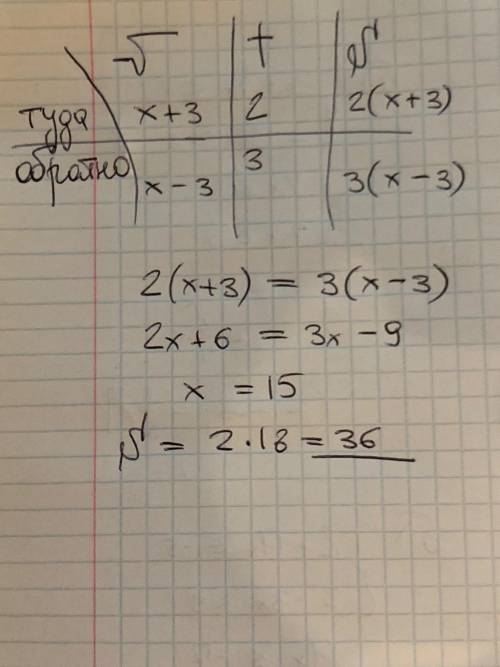 v t S
туда x+3 2 2(x+3)
обратно x-3 3 3(x-3)
2(x+3) = 3(x-3)
2x+6 = 3x-9
x = 15
S = 2·18 = 36